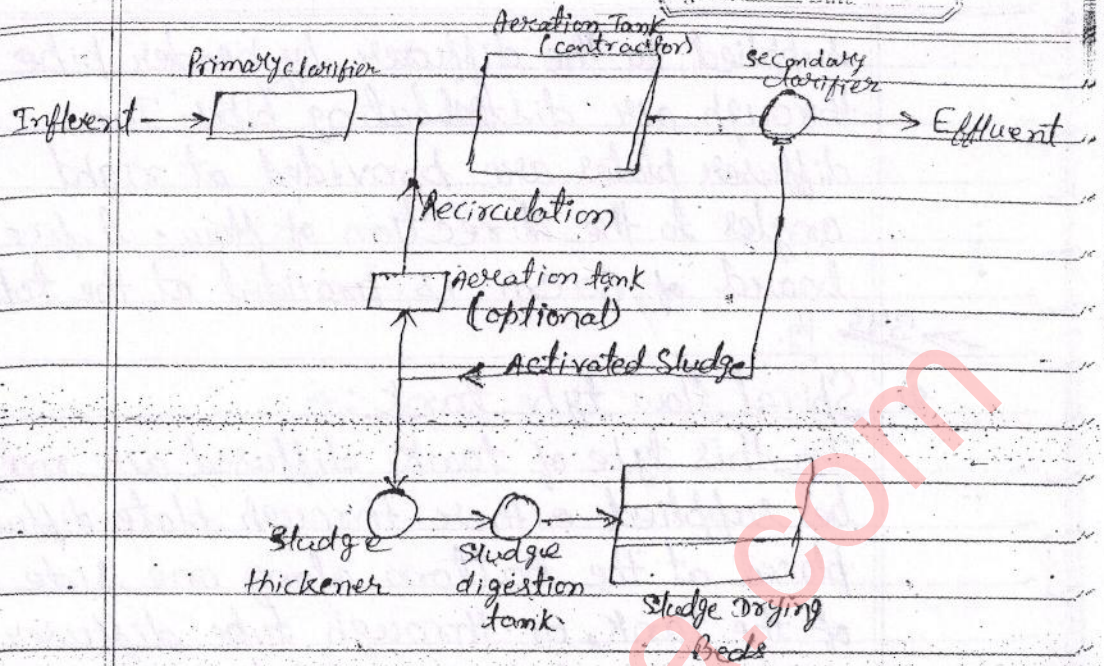 Aeration Tank
(contractor)
Primary clarifier
secondary
clarifier
Influent
Effluent
Recirculation
Aeration tank
(optional)
Activated Sludge
Sludge
thickener
Sludge
digestion
tank.
Sludge Drying
Beds
e.com